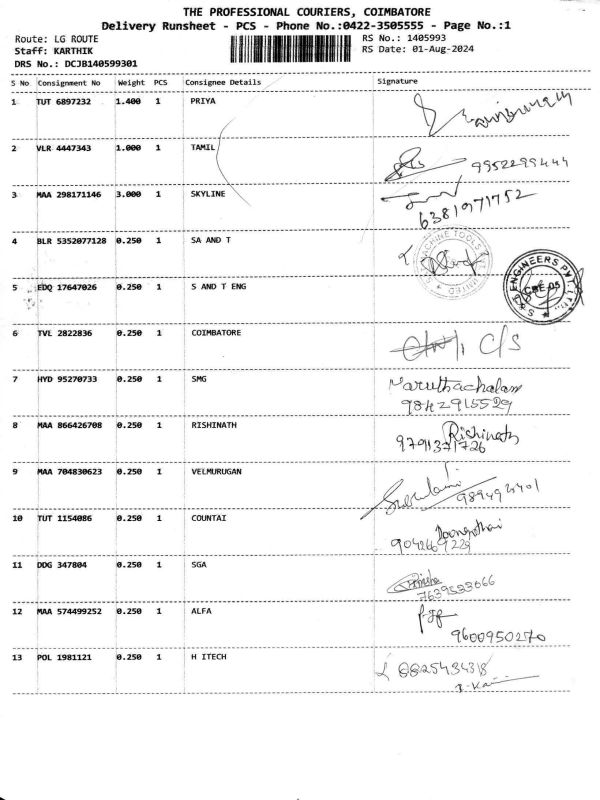 THE PROFESSIONAL COURIERS, COIMBATORE
Delivery Runsheet - PCS - Phone No.:0422-3505555 - Page No.:1
Route: LG ROUTE RS No.: 1405993
Staff: KARTHIK RS Date: 01-Aug-2024
DRS No.: DCJB140599301
S No Consignment No Weight PCS Consignee Details Signature
1 TUT 6897232 1.400 1 PRIYA
2 VLR 4447343 1.000 1 TAMIL
9952299444
3 MAA 298171146 3.000 1 SKYLINE
6381971752
4 BLR 5352077128 0.250 1 SA AND T
MACHINE TOOLS
UNITED
5 EDQ 17647026 0.250 1 S AND T ENG
ENGINEERS PVT. LTD.
CBE-05
6 TVL 2822836 0.250 1 COIMBATORE
C/S
7 HYD 95270733 0.250 1 SMG
Maruthachalam
9842915529
8 MAA 866426708 0.250 1 RISHINATH
Rishinath
9791371726
9 MAA 704830623 0.250 1 VELMURUGAN
10 TUT 1154086 0.250 1 COUNTAI
11 DDG 347804 0.250 1 SGA
7639533066
12 MAA 574499252 0.250 1 ALFA
9600950270
13 POL 1981121 0.250 1 H ITECH